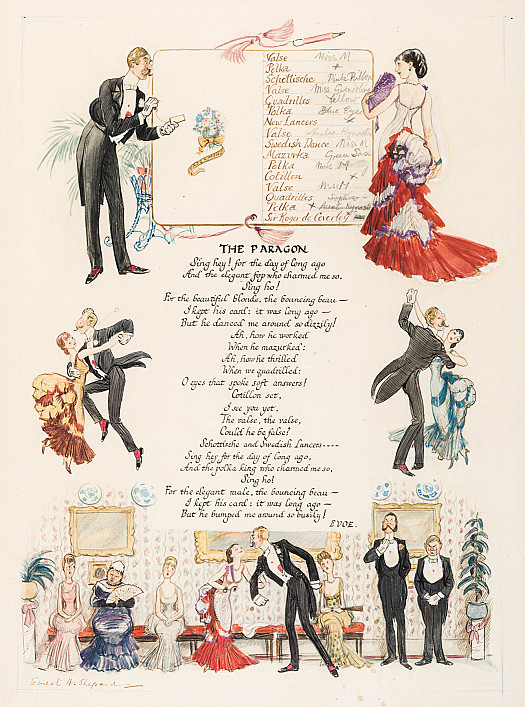 Valse Miss M
Polka +
Schottische Pink Ribbon
Valse Miss
Quadrilles Yellow
Polka Blue Eyes
New Lancers +
Valse
Swedish Dance Miss M
Mazurka Green Sash
Polka Miss
Cotillon +
Valse Miss M
Quadrilles Sophia
Polka +
Sir Roger de Coverley
THE PARAGON
Sing hey! for the day of long ago
And the elegant fop who charmed me so.
Sing ho!
For the beautiful blonde, the bouncing beau —
I kept his card: it was long ago —
But he danced me around so dizzily!
Ah, how he worked
When he mazurked:
Ah, how he thrilled
When we quadrilled:
O eyes that spoke soft answers!
Cotillon set,
I see you yet.
The valse, the valse,
Could he be false?
Schottische and Swedish Lancers----
Sing hey for the day of long ago,
And the polka king who charmed me so,
Sing ho!
For the elegant male, the bouncing beau —
I kept his card: it was long ago —
But he bumped me around so busily!
EVOE.
Ernest H. Shepard